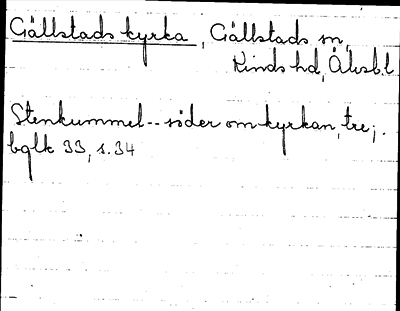 Gällstads kyrka, Gällstads sn,
Kinds hd, Älvsb.l
Stenkummel -- söder om kyrkan, tre;.
bglk 33, s.34